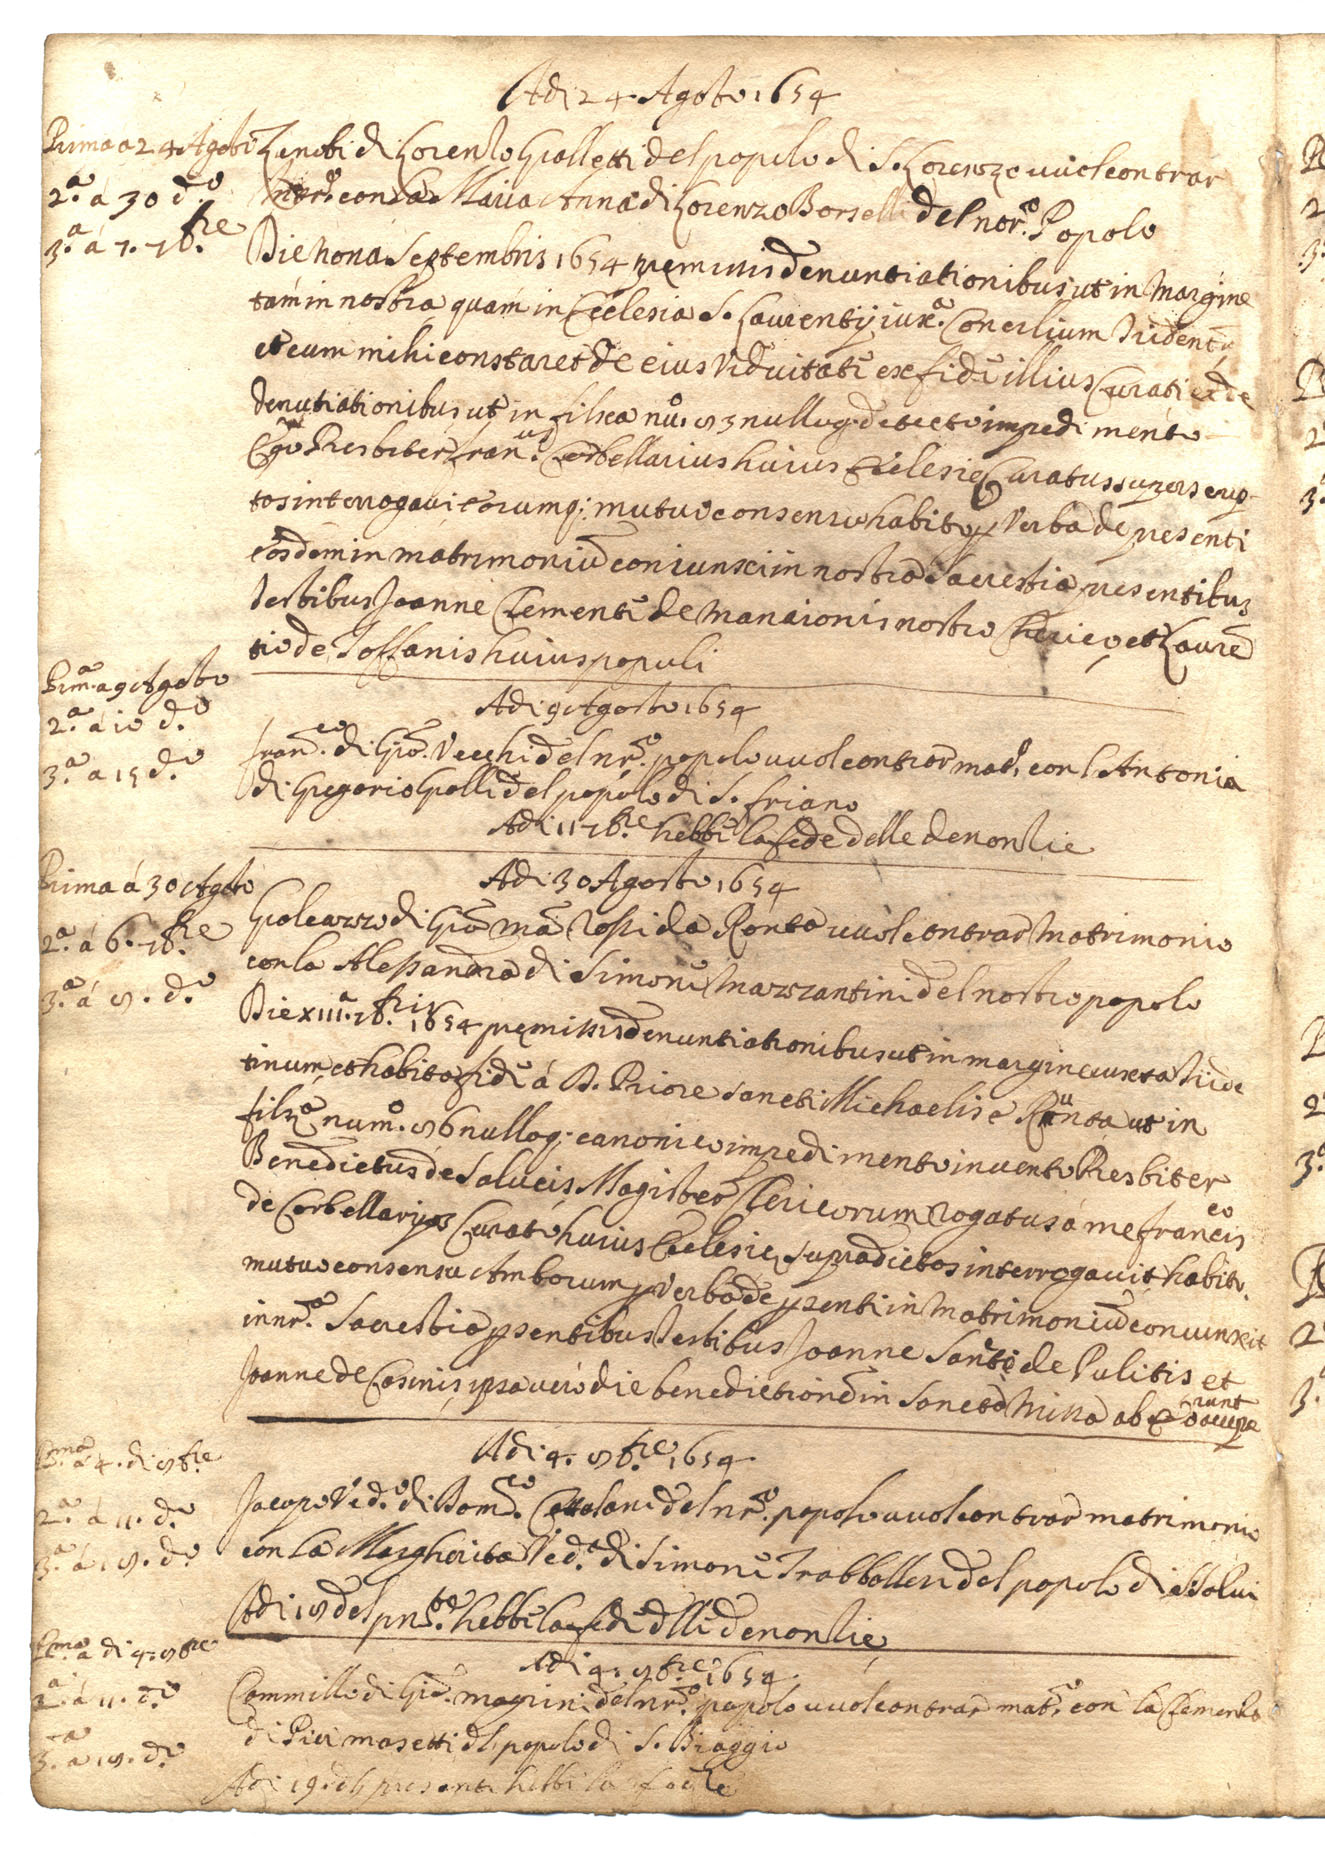 Adi 24 Agosto 1654
Prima a 24 Agosto
2.a á 30 d.o
3.a á 7. 7b.re
Zenobi di Lorenzo Galletti del popolo di S. Lorenzo vuol contrar
matr.o con la Maria Anna di Lorenzo Borselli del nor.o Popolo
Die nona Septembris 1654 premissis denuntiationibus ut in margine
tam in nostra quám in Ecclesia S. Laurentij iux.a Concilium Trident.
et cum mihi constaret de eius viduitate ex fide illius Curati et de
denutiationibus ut in filza nu.o 83 nulloq. detecto impedimento
Ego Presbiter Fran.us Corbellarius huius Eclesie Curatus suprascrip-
tos interrogavi eorumq; mutuo consensu habito p verba de presenti
eosdem in matrimoniū coniunxi in nostra Sacrestia presentibus
testibus Joanne Clemente de Manaionis nostro Clerico et Laurē
tio de Toffanis huius populi
Prim.a a 9 Agosto
2.a á 10 d.o
3.a a 15 d.o
Adi 9 Agosto 1654
Fran.co di Gio. Vecchi del nr.o popolo vuol contrar mat.o con l'Antonia
di Gregorio Galli del popolo di S. Friano
Adi 11 7b.re hebbi la fede delle denonzie
Prima á 30 Agosto
2.a á 6. 7b.re
3.a á 8. d.o
Adi 30 Agosto 1654
Galeazzo di Gio Ma Rossi da Ronta vuol contrar Matrimonio
con la Alessandra di Simone Mazzantini del nostro popolo
Die XIII.a 7b.ris 1654 premissis denuntiationibus ut in margine iuxta Tride
tinum et habita fide á D. Priore Sancti Michaelis e Ronta ut in
filza num.o 86 nulloq; canonico impedimento invento Presbiter
Benedictus de Salucis Magister Clericorum rogatus á me Francis
co
de Corbellarijs Curato huius Ecclesie supradictos interrogavit habito
mutuo consensu Amborum p verba de psenti in Matrimoniū coniunxit
in nr.a Sacrestia psentibus testibus Joanne Sante de Pulitis et
Joanne de Casinis ipsa vero die benedictionē in Sancta Missa ab eo
runt
Pma á 4. di 8b.re
2.a á 11. d.o
3.a á 18. d.o
Adi 4. 8b.re 1654
Jacopo Ved.o di Dom.co Cattolani del nr.o popolo vuol contrar matrimonio
con la Margherita Ved.a di Simone Trabballesi del popolo di S Salvi
Adi 18 del pnte hebbi la fede d'lli denonzie
Pma a di 4. 8bre
2.a á 11. d.o
3.a a 18. d.o
Adi 4. 8b.re 1654
Cammillo di Gio. magrini del nr.o popolo vuol contrar mat.o con la Clemenza
di Pier masetti d'l popolo di S. Biaggio
Adi 19. d'l presente hebbi la fede